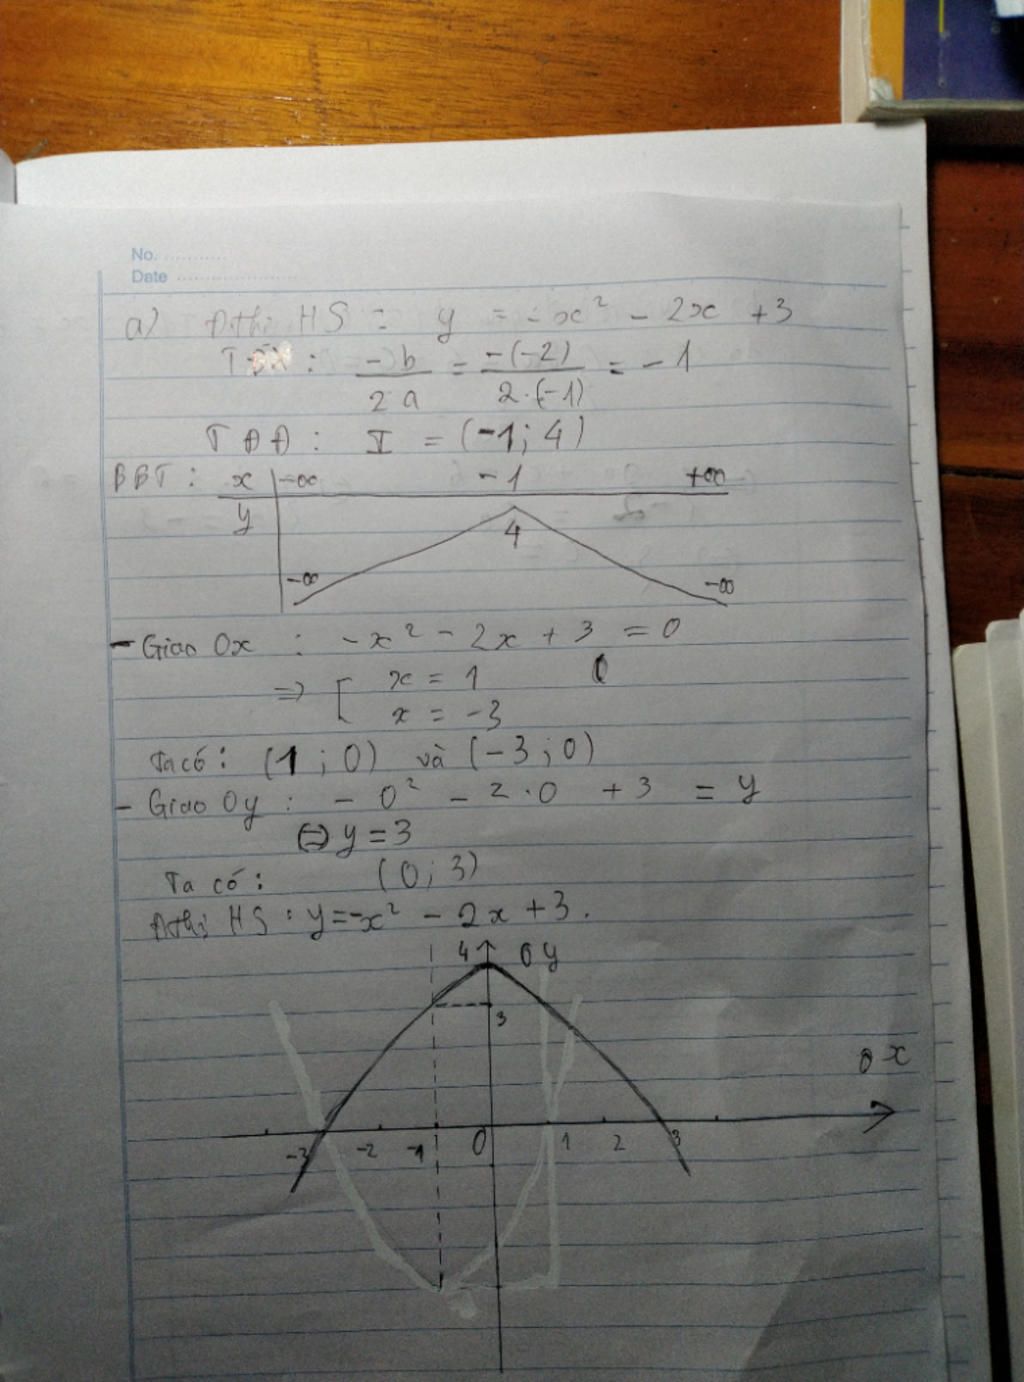 No. ..........
Date ....................
a) Đthị HS : y = -x² - 2x + 3
: -b/2a = -(-2)/2.(-1) = -1
TĐĐ : I = (-1; 4)
BBT : x -∞ -1 +∞
y
4
-∞ -∞
- Giao Ox : -x² - 2x + 3 = 0
=> [ x = 1
x = -3
Ta có : (1 ; 0) và (-3 ; 0)
- Giao Oy : - 0² - 2.0 + 3 = y
<=> y = 3
Ta có : (0 ; 3)
Đthị HS : y = -x² - 2x + 3.
4 0 y
3
0 x
-3 -2 -1 0 1 2 3